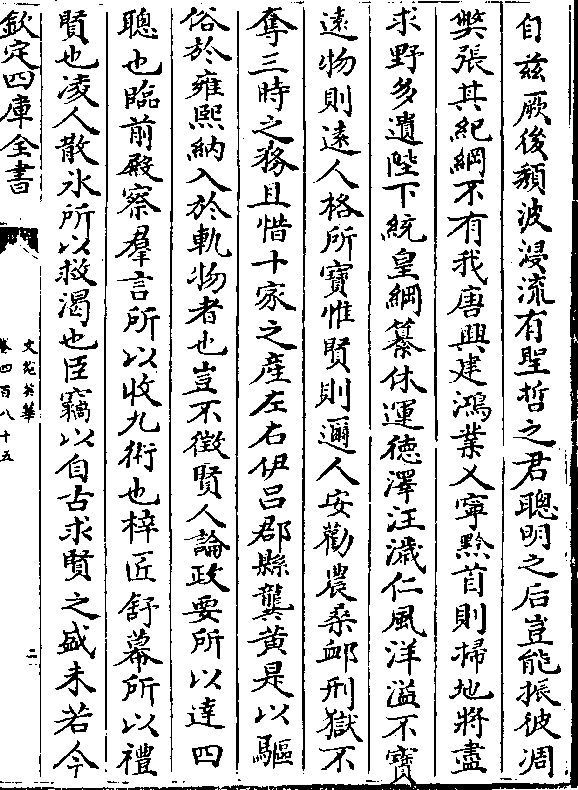 自兹厥後頽波浸流有聖哲之君聰明之后豈能振彼凋
弊張其紀綱不有我唐興建鴻業乂寧黔首則掃地將盡
求野多遺陛下統皇綱纂休運徳澤汪濊仁風洋溢不寶
逺物則逺人格所寶惟賢則邇人安勸農桑䘏刑獄不
奪三時之務且惜十家之産左右伊呂郡縣龔黄是以驅
俗於雍熙納入於軌物者也豈不徴賢人論政要所以達四
聰也臨前殿察羣言所以收九術也梓匠舒幕所以禮
賢也凌人散氷所以救渇也臣竊以自古求賢之盛未若今
欽定四庫全書
文苑英華
卷四百八十五
二